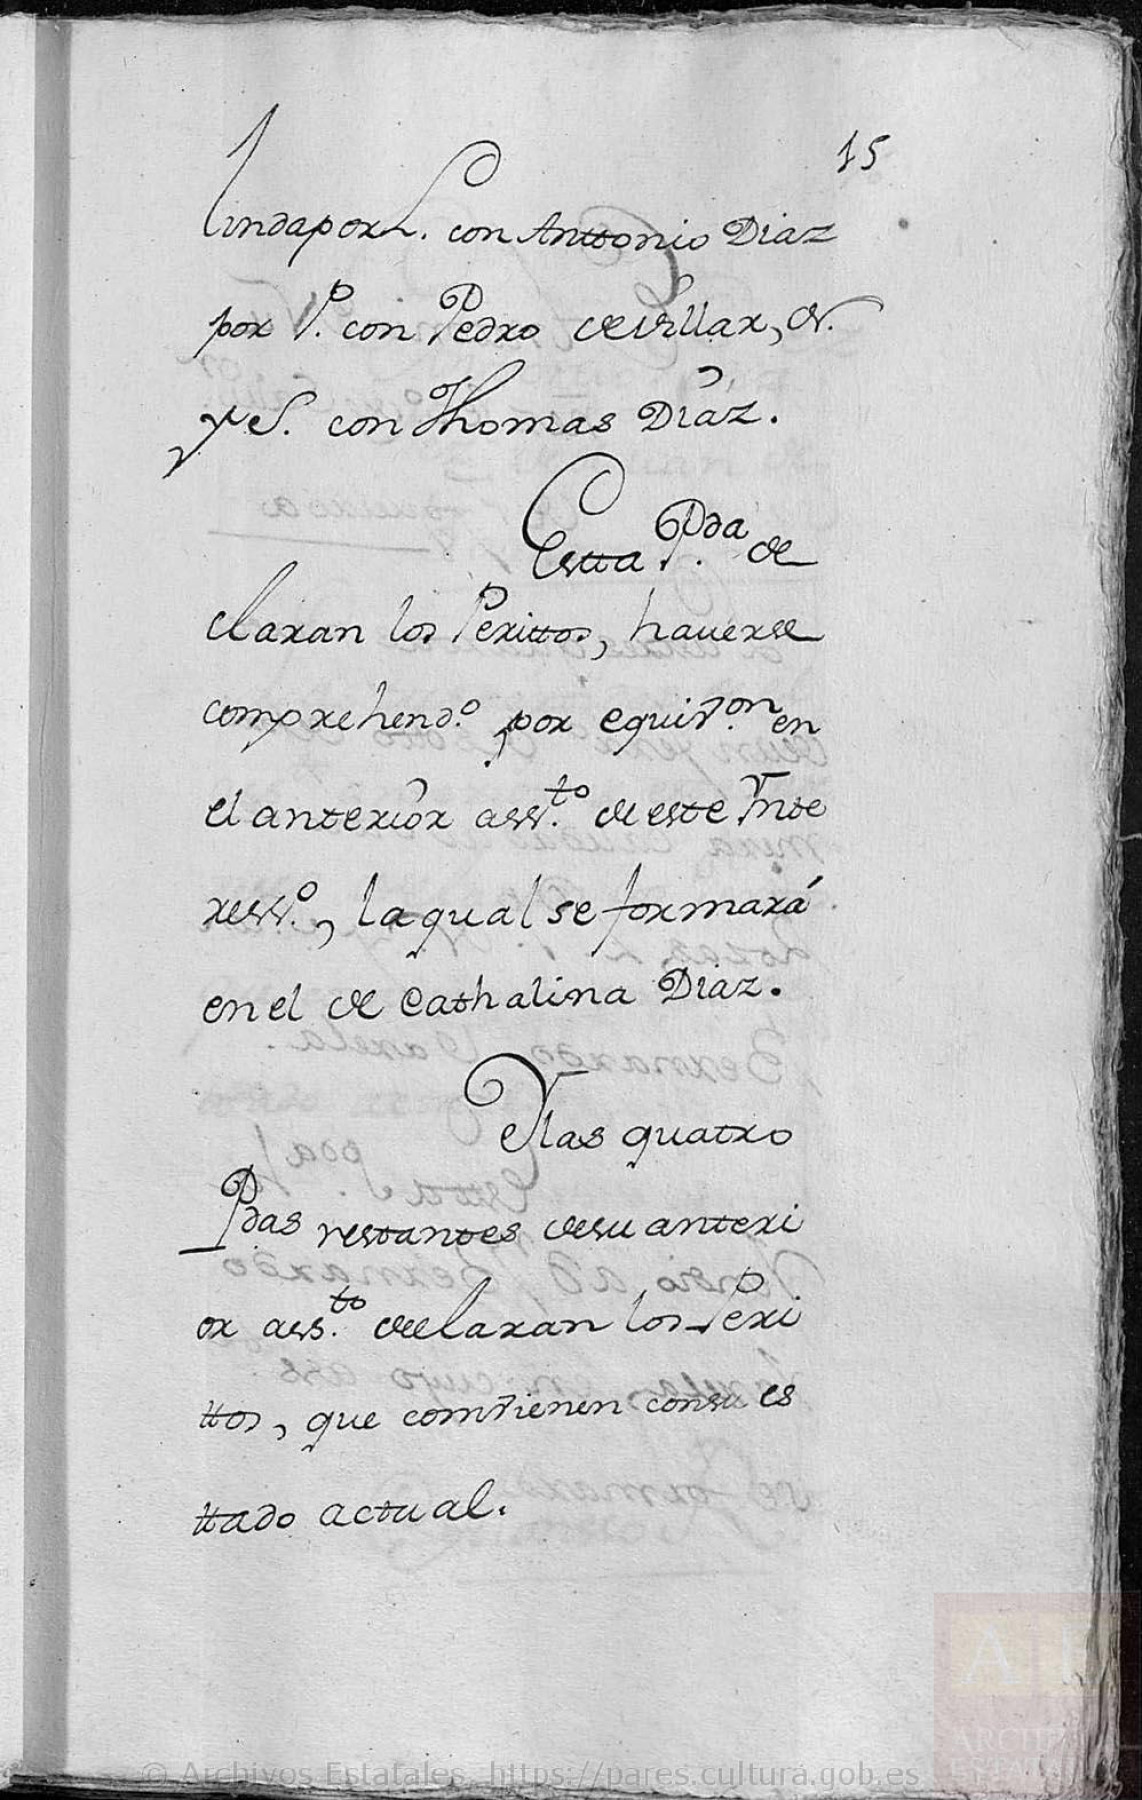 15
linda por L. con Anttonio Diaz
por P. con Pedro de Villar, N.
y S. con Thomas Diaz.
Estta P.da de
claran los Perittos, haverse
comprehend.º por equiv.on en
el anterior ass.to de este Ynte
ress.º, la qual se formará
en el de Cathalina Diaz.
Y las quatro
Pdas restantes de su anteri
or ass.to declaran los Peri
ttos, que combienen con su es
ttado actual.
© Archivos Estatales, https://pares.cultura.gob.es